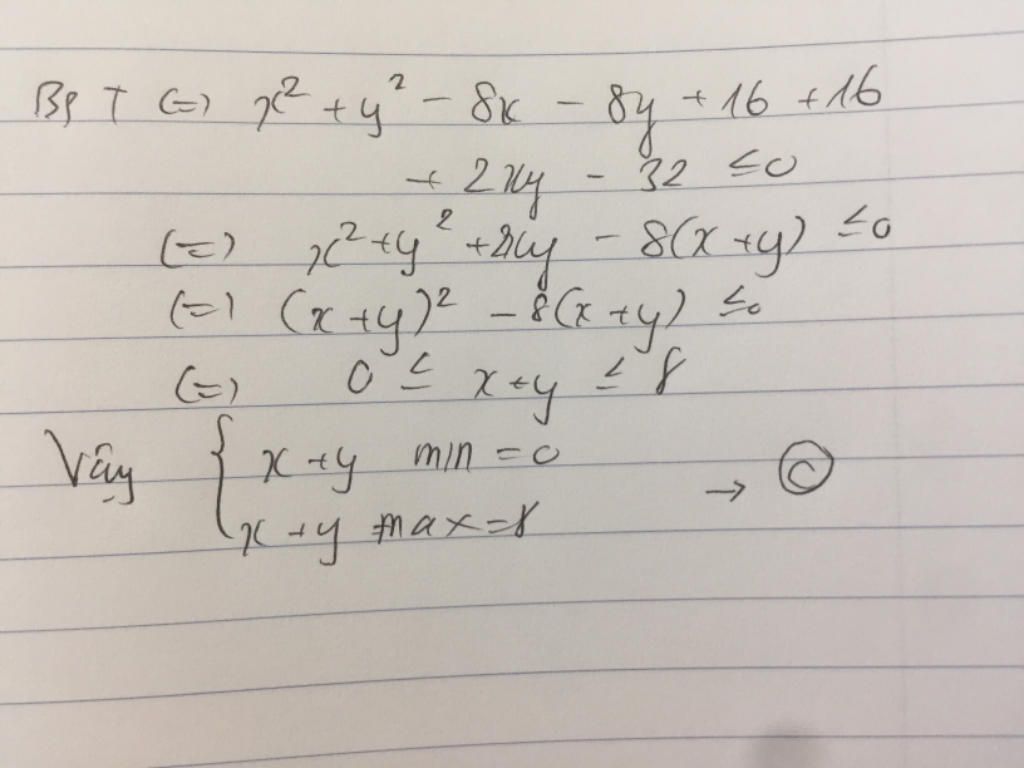 BPT (=) x² + y² - 8x - 8y + 16 + 16
+ 2xy - 32 ≤ 0
(=) x² + y² + 2xy - 8(x + y) ≤ 0
(=) (x + y)² - 8(x + y) ≤ 0
(=) 0 ≤ x + y ≤ 8
Vây { x + y min = 0
x + y max = 8 → Ⓒ